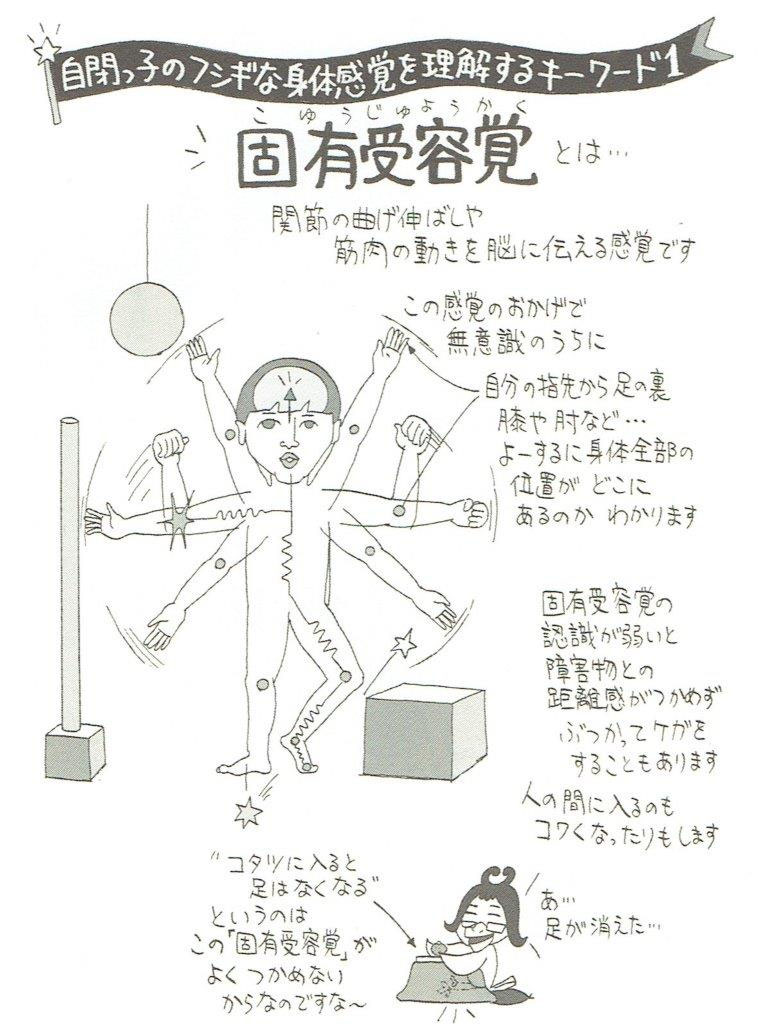 自閉っ子のフシギな身体感覚を理解するキーワード1
こゆうじゅようかく
固有受容覚とは…
関節の曲げ伸ばしや
筋肉の動きを脳に伝える感覚です
この感覚のおかげで
無意識のうちに
自分の指先から足の裏
膝や肘など…
よーするに身体全部の
位置が どこに
あるのか わかります
固有受容覚の
認識が弱いと
障害物との
距離感がつかめず
ぶつかってケガを
することもあります
人の間に入るのも
コワくなったりもします
"コタツに入ると
足はなくなる"
というのは
この「固有受容覚」が
よく つかめない
からなのですな〜
あ…
足が消えた…